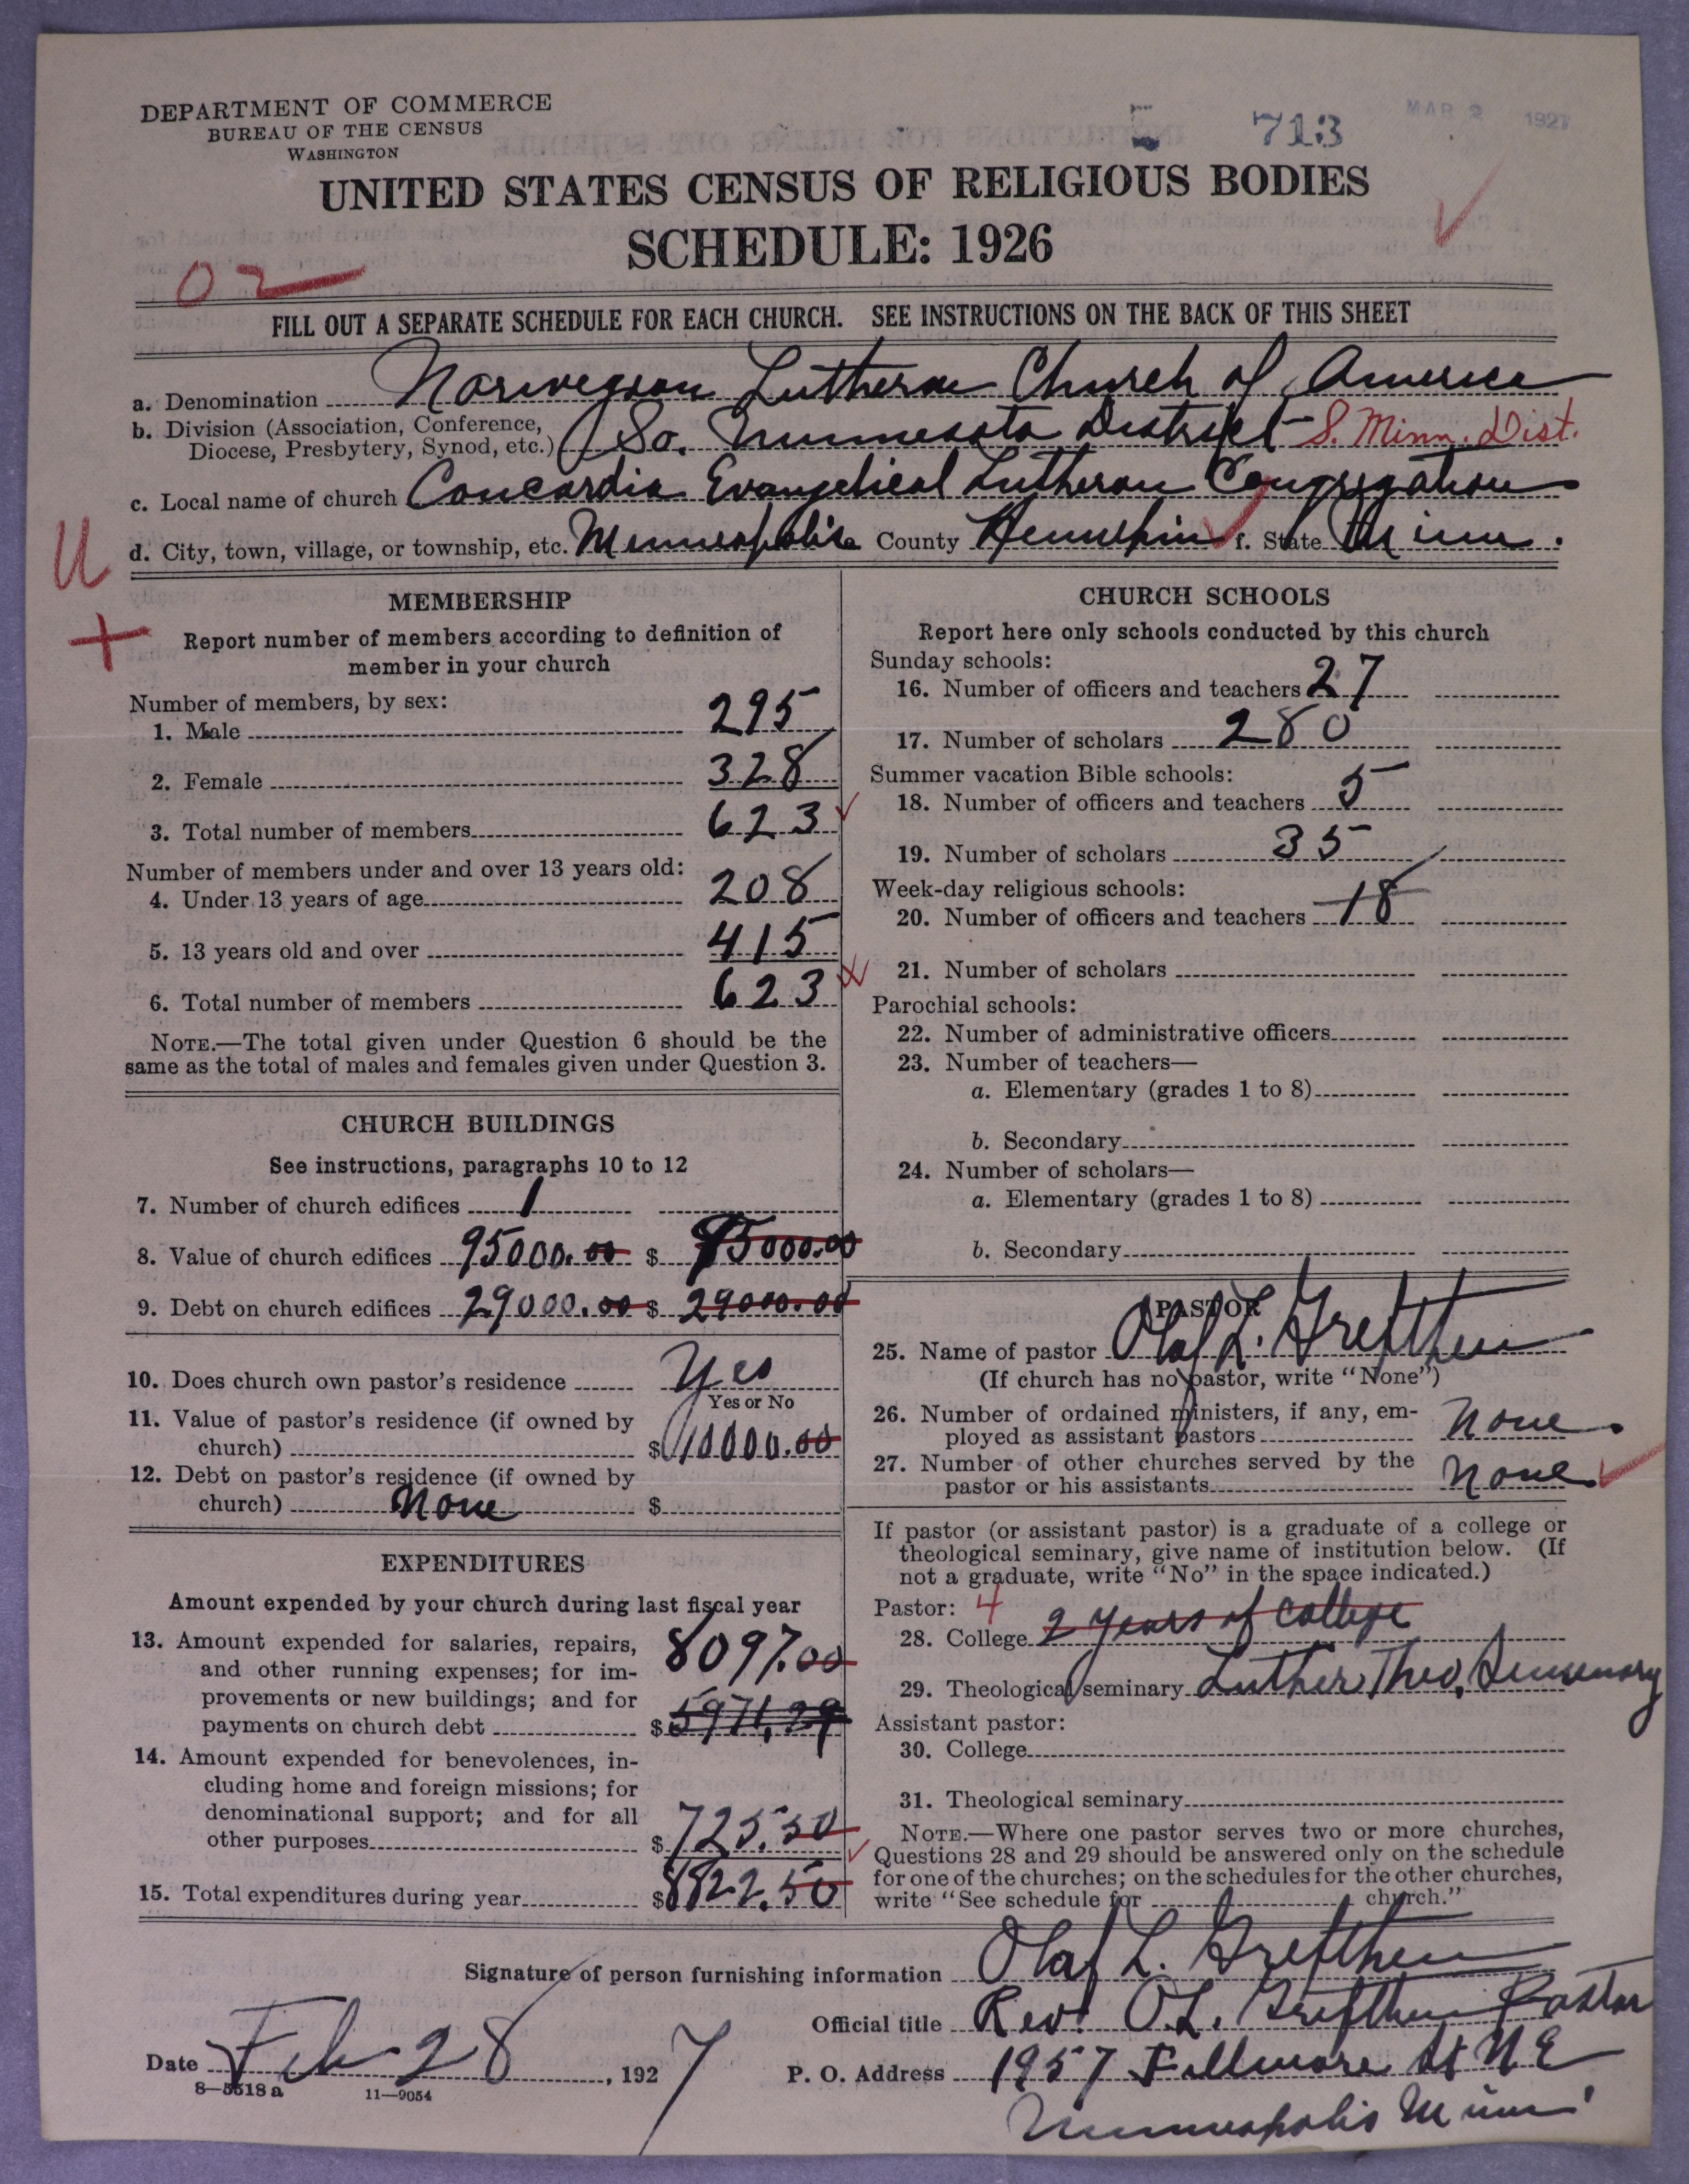 DEPARTMENT OF COMMERCE
BUREAU OF THE CENSUS
WASHINGTON
713
MAR 2 1927
UNITED STATES CENSUS OF RELIGIOUS BODIES
SCHEDULE: 1926
02
FILL OUT A SEPARATE SCHEDULE FOR EACH CHURCH. SEE INSTRUCTIONS ON THE BACK OF THIS SHEET
a. Denomination Norwegian Lutheran Church of America
b. Division (Association, Conference,
Diocese, Presbytery, Synod, etc.) So. Minnesota District S. Minn. Dist.
c. Local name of church Concordia Evangelical Lutheran Congregation
U
d. City, town, village, or township, etc. Minneapolis County Hennepin f. State Minn.
+
MEMBERSHIP
Report number of members according to definition of
member in your church
Number of members, by sex:
1. Male 295
2. Female 328
3. Total number of members 623
Number of members under and over 13 years old:
4. Under 13 years of age 208
5. 13 years old and over 415
6. Total number of members 623
NOTE.—The total given under Question 6 should be the
same as the total of males and females given under Question 3.
CHURCH BUILDINGS
See instructions, paragraphs 10 to 12
7. Number of church edifices 1
8. Value of church edifices 95000.00 $ 95000.00
9. Debt on church edifices 29000.00 $ 29000.00
10. Does church own pastor's residence Yes
Yes or No
11. Value of pastor's residence (if owned by
church) $ 10000.00
12. Debt on pastor's residence (if owned by
church) None $
EXPENDITURES
Amount expended by your church during last fiscal year
13. Amount expended for salaries, repairs,
and other running expenses; for im- 8097.00
provements or new buildings; and for
payments on church debt $ 5971.29
14. Amount expended for benevolences, in-
cluding home and foreign missions; for
denominational support; and for all
other purposes $ 725.50
15. Total expenditures during year $ 8822.50
CHURCH SCHOOLS
Report here only schools conducted by this church
Sunday schools:
16. Number of officers and teachers 27
17. Number of scholars 280
Summer vacation Bible schools:
18. Number of officers and teachers 5
19. Number of scholars 35
Week-day religious schools:
20. Number of officers and teachers 18
21. Number of scholars
Parochial schools:
22. Number of administrative officers
23. Number of teachers—
a. Elementary (grades 1 to 8)
b. Secondary
24. Number of scholars—
a. Elementary (grades 1 to 8)
b. Secondary
PASTOR
25. Name of pastor Olaf L. Grefthen
(If church has no pastor, write "None")
26. Number of ordained ministers, if any, em-
ployed as assistant pastors None
27. Number of other churches served by the
pastor or his assistants None
If pastor (or assistant pastor) is a graduate of a college or
theological seminary, give name of institution below. (If
not a graduate, write "No" in the space indicated.)
Pastor: 4
28. College 2 years of college
29. Theological seminary Luther Theo. Seminary
Assistant pastor:
30. College
31. Theological seminary
NOTE.—Where one pastor serves two or more churches,
Questions 28 and 29 should be answered only on the schedule
for one of the churches; on the schedules for the other churches,
write "See schedule for church."
Signature of person furnishing information Olaf L. Grefthen
Official title Rev. O.L. Grefthen Pastor
Date Feb 28, 1927
P. O. Address 1957 Fillmore St N E
Minneapolis Minn
8—5518 a 11—9054